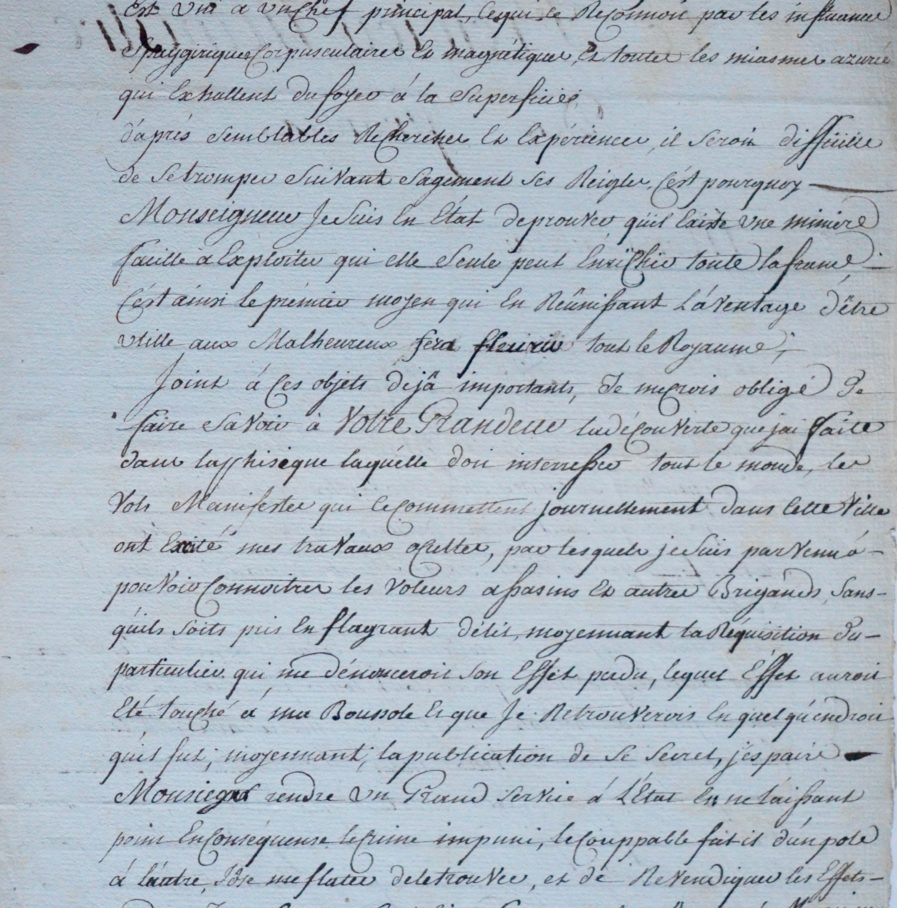 Est uni a un Chef principal, lequel se Reconnoit par les influences
Spagiriques Corpusculaires Et magnetique, Et toutes les miasmes azurés
qui Exhallent du foyer á la Superficiés
d'aprés Semblables Recherches Et Expériences, il seroit difficille
de se tromper Suivant Sagement Ses Reigles, C'est pourquoy
Monseigneur Je Suis En Etat de prouver qu'il Existe une minière
facille a Exploiter qui elle Seule peut Enrichir toute la france
C'est ainsi le prémier moyen qui En Réunissant L'aventage d'être
utille aux Malheureux fera fleurir tout le Royaume,
Joint á Ces objets dejâ importants, Je me crois obligé De
faire Savoir à Votre Grandeur la découverte que jai faite
dans la phisique laquelle doit interresser tout le monde, les
Vols Manifestes qui Se Commettent journellement dans Cette Ville
ont Excité mes travaux , par lesquels je Suis parvenu á
pouvoir Connoitre les Voleurs assasins Et autres Brigands, Sans
qu'ils Soits pris En flagrant délit, moyennant la Réquisition du
particulier qui me dénonceroit Son Effet perdu, lequel Effet auroit
Eté touché á ma Boussole Et que Je Retrouverois En quelqu'endroit
qu'il fut, moyennant, la publication de Se Secret, j'espaire
rendre un Grand Service á L'Etat En ne laissant
point En Conséquense le Crime impuni, le Couppable fut il d'un pole
á l'autre, me flater de le trouver, et de Revendiquer les Effets